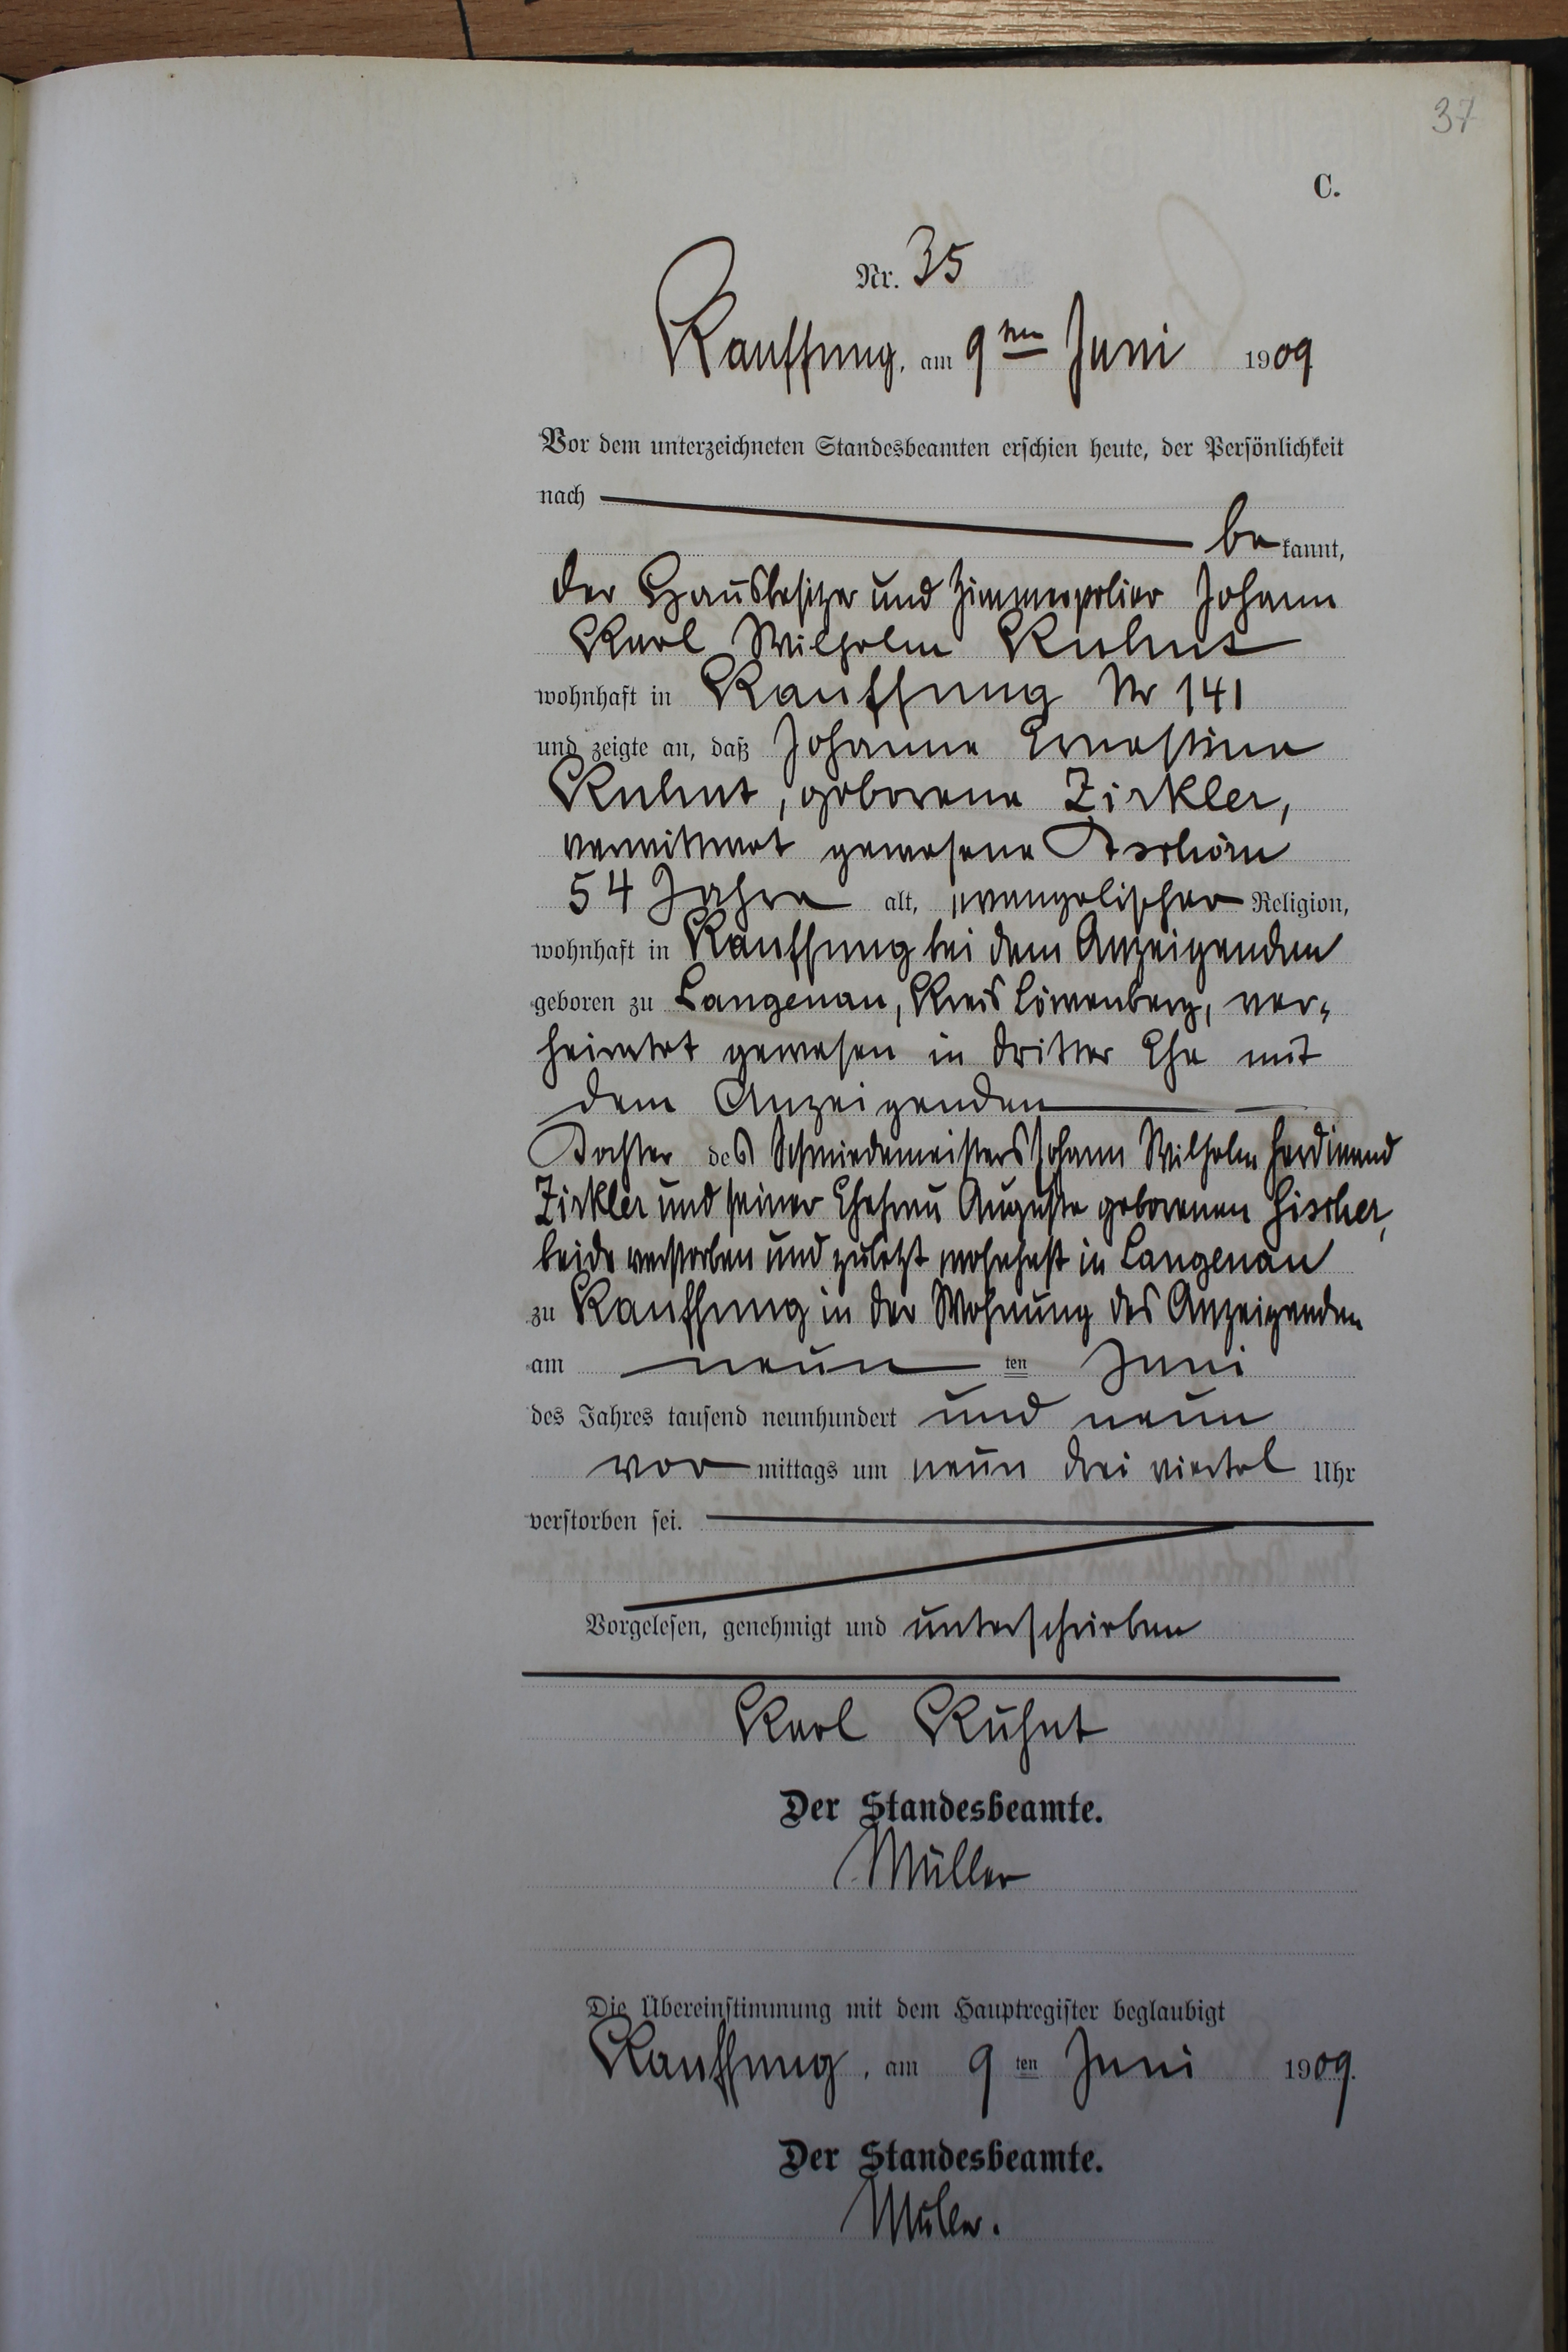 37
C.
Nr. 35
Kauffung, am 9ten Juni 1909
Vor dem unterzeichneten Standesbeamten erschien heute, der Persönlichkeit
nach
bekannt,
der Hausbesitzer und Zimmerpolier Johann
Karl Wilhelm Kuhnt
wohnhaft in Kauffung Nr 141
und zeigte an, daß Johanne Ernestine
Kuhnt, geborene Zirkler,
verwittwet gewesene Tschörn
54 Jahre alt, evangelischer Religion,
wohnhaft in Kauffung bei dem Anzeigenden
geboren zu Langenau, Kreis Löwenberg, ver-
heiratet gewesen in dritter Ehe mit
dem Anzeigenden
Tochter des Schmiedemeisters Johann Wilhelm Ferdinand
Zirkler und seiner Ehefrau Auguste geborenen Fischer,
beide verstorben und zuletzt wohnhaft in Langenau
zu Kauffung in der Wohnung des Anzeigenden
am neun ten Juni
des Jahres tausend neunhundert und neun
vormittags um neun drei viertel Uhr
verstorben sei.
Vorgelesen, genehmigt und unterschrieben
Karl Kuhnt
Der Standesbeamte.
Müller
Die Übereinstimmung mit dem Hauptregister beglaubigt
Kauffung, am 9ten Juni 1909.
Der Standesbeamte.
Müller.